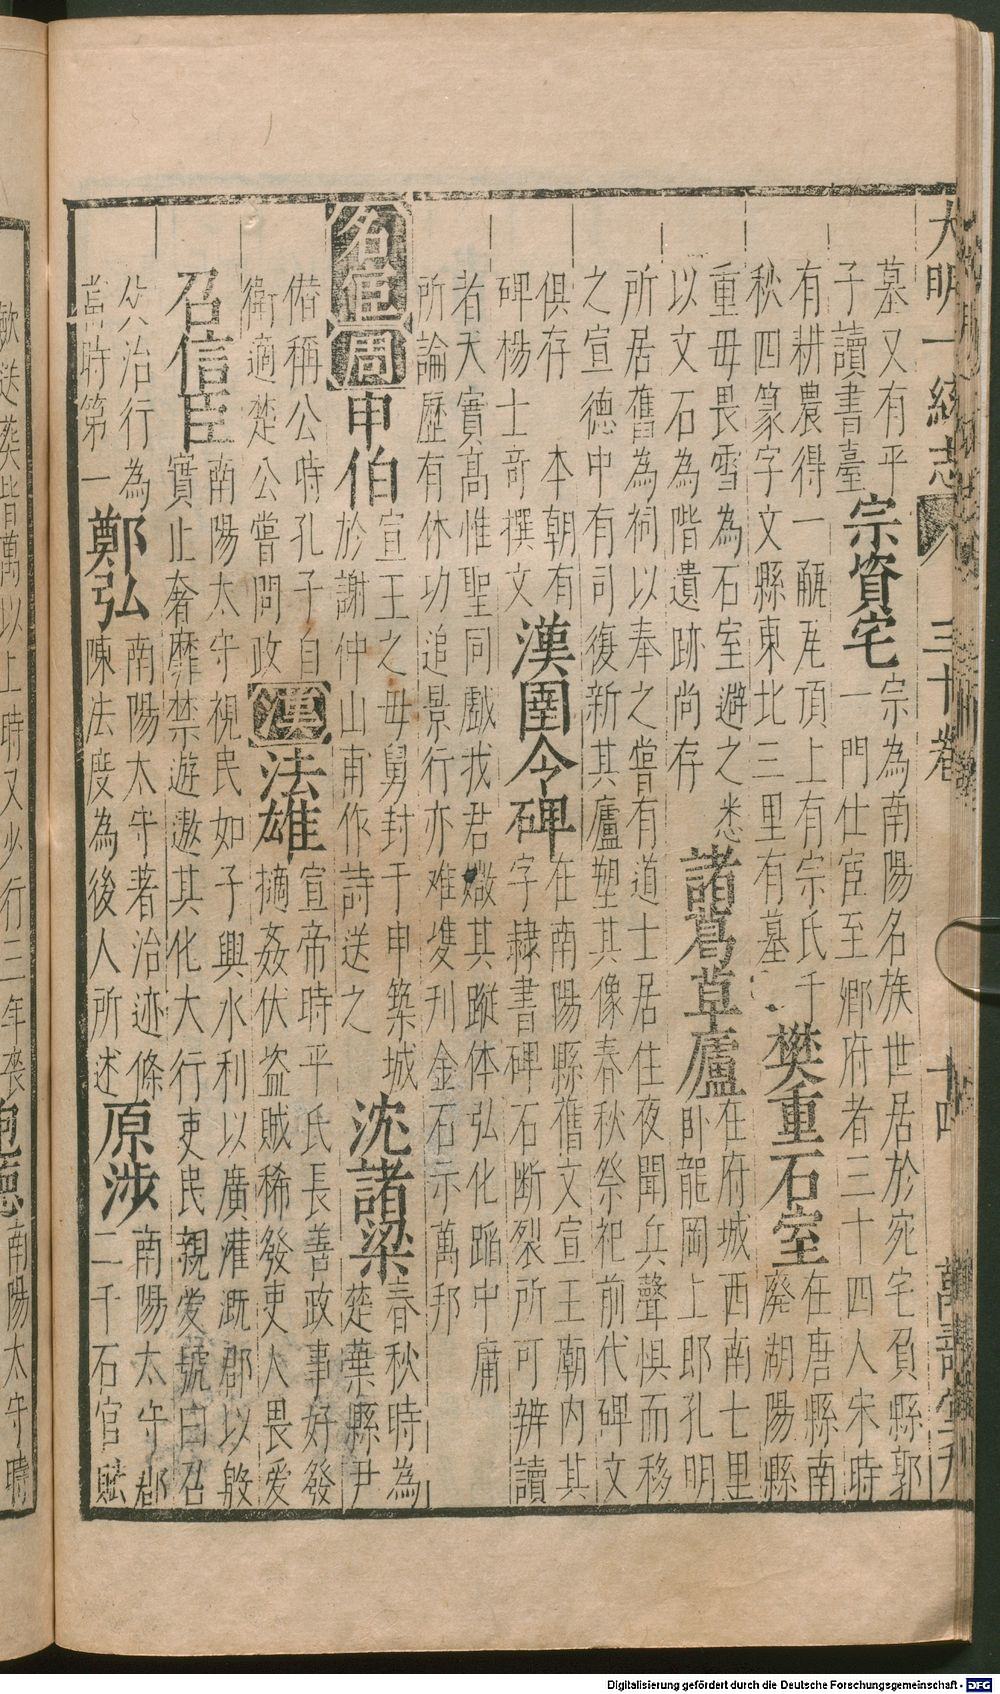 大明一統志 三十卷 十四 萬壽堂刊
墓又有平 宗資宅 宗為南陽名族世居於宛宅負縣郭
子讀書臺 一門仕宦至鄉府者三十四人宋時
有耕農得一瓻瓦頂上有宗氏千 樊重石室 在唐縣南
秋四篆字文縣東北三里有墓 廢湖陽縣
重毋畏雪為石室避之 諸葛草廬 在府城西南七里
以文石為階遺跡尚存 臥龍岡上郎孔明
所居舊為祠以奉之嘗有道士居住夜聞兵聲惧而移
之宣德中有司復新其廬塑其像春秋祭祀前代碑文
俱存 本朝有 漢圉令碑 在南陽縣舊文宣王廟内其
碑楊士奇撰文 字隸書碑石断裂所可辨讀
者天實髙惟聖同戲我君 其蹤体弘化蹈中庸
所論歷有休功追景行亦难隻刋金石示萬邦
名宦 周 申伯 宣王之毋舅封于申築城 沈諸梁 春秋時為
於謝仲山甫作詩送之 楚葉縣尹
僣稱公時孔子自 漢 法雄 宣帝時平氏長善政事好發
衛適楚公嘗問政 擿姦伏盗賊稀發吏人畏爱
召信臣 南陽太守視民如子興水利以廣灌溉郡以殷
實止奢靡禁遊遨其化大行吏民親爱號曰召
父治行為 鄭弘 南陽太守著治迹條 原涉 南陽太守郡
當時第一 陳法度為後人所述 二千石官賦
歛送葬皆萬以上時又少行三年喪 鮑德 南陽太守時
Digitalisierung gefördert durch die Deutsche Forschungsgemeinschaft - DFG